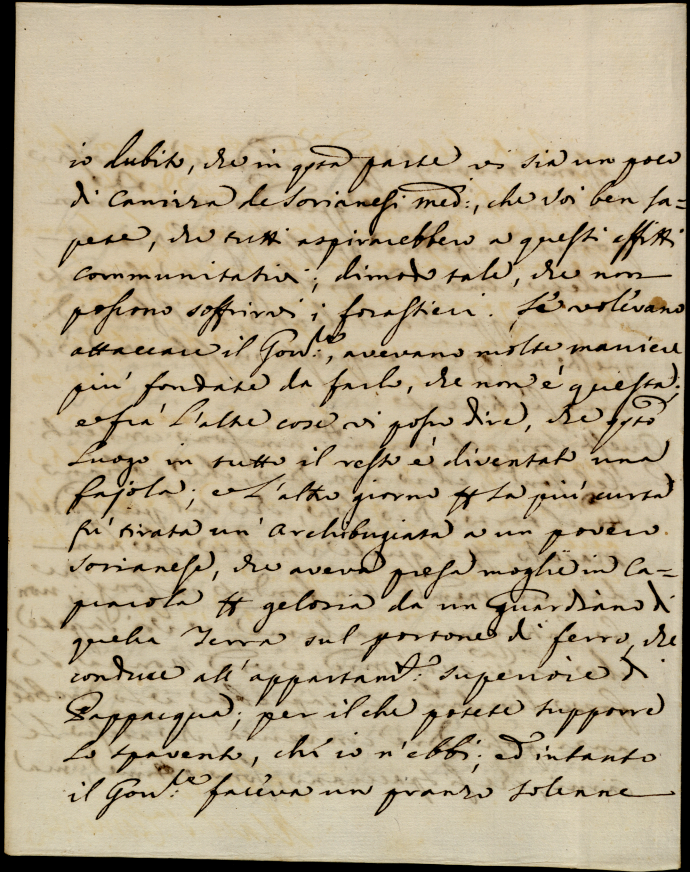 io dubito, che in qsta parte vi sia un poco
di Canizza de Sorianesi med:, che voi ben sa=
pete, che tutti aspirarebbero a questi offitti
communitativi; dimodo tale, che non
possono soffrirvi i forastieri. Se volevano
attaccare il Gov.re, avevano molte maniere
più fondate da farlo, che non è questa;
e frà l'altre cose vi posso dire, che qsto
Luogo in tutto il resto è diventato una
fajola; e l'altro giorno la più curta
fù tirata un' Archibugiata a un povero
Sorianese, che aveva presa moglie in Ca=
praiola gelosia da un Guardiano di
quella Terra sul portone di ferro, che
conduce all' appartam.to superiore di
Pappacqua; per il che potete supporre
lo spavento, ch' io n' ebbi; ed intanto
il Gov.re faceva un pranzo solenne